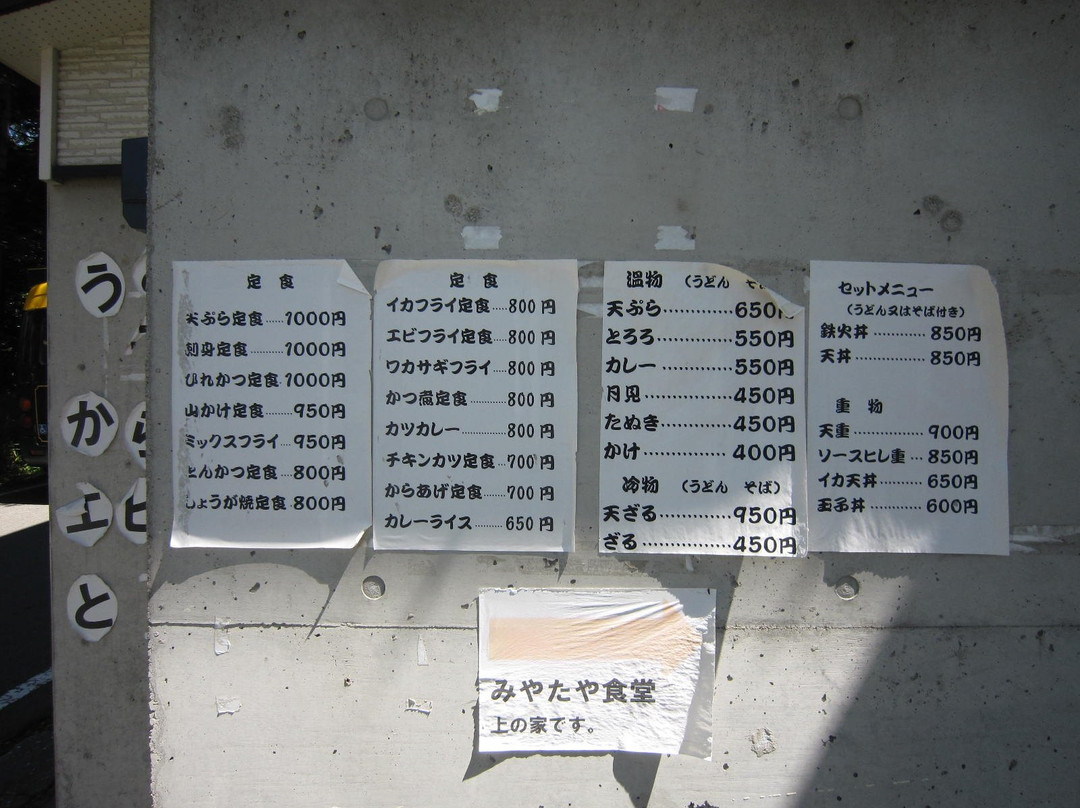 う
か
エ
と
か
ら
ヒ
定食
天ぷら定食……1000円
刺身定食………1000円
ひれかつ定食‥1000円
山かけ定食………950円
ミックスフライ…950円
とんかつ定食……800円
しょうが焼定食‥800円
定食
イカフライ定食……800円
エビフライ定食……800円
ワカサギフライ……800円
かつ煮定食…………800円
カツカレー…………800円
チキンカツ定食……700円
からあげ定食………700円
カレーライス………650円
温物 (うどん そ
天ぷら……………650円
とろろ……………550円
カレー……………550円
月見………………450円
たぬき……………450円
かけ………………400円
冷物 (うどん そば)
天ざる……………950円
ざる………………450円
セットメニュー
(うどん又はそば付き)
鉄火丼…………850円
天丼……………850円
重物
天重……………900円
ソースヒレ重…850円
イカ天丼………650円
玉子丼…………600円
みやたや食堂
上の家です。